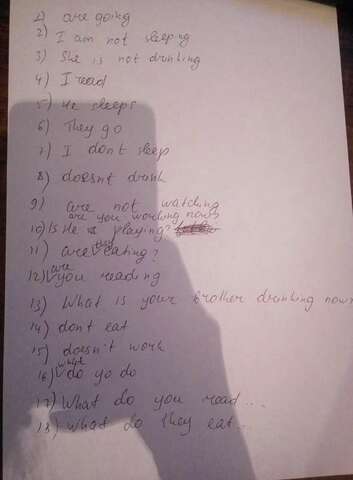 1) are going
2) I am not sleeping
3) She is not drinking
4) I read
5) He sleeps
6) They go
7) I dont sleep
8) doesnt drink
9) are not watching
are you working now?
10) Is He playing?
11) are they eating?
12) are you reading
13) What is your brother drinking now?
14) dont eat
15) doesn't work
16) what do yo do
17) What do you read...
18) What do they eat...